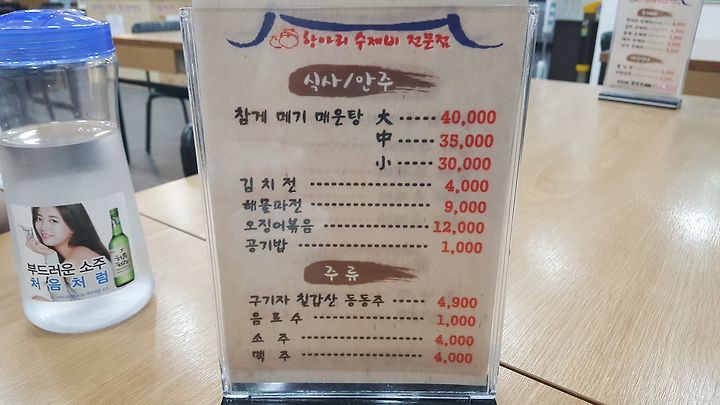 항아리 수제비 전문점
식사/안주
참게 메기 매운탕 大 ····· 40,000
中 ····· 35,000
小 ····· 30,000
김치전 ················ 4,000
해물파전 ················ 9,000
오징어볶음 ············· 12,000
공기밥 ················ 1,000
주류
구기자 칠갑산 동동주 ····· 4,900
음료수 ················ 1,000
소주 ················ 4,000
맥주 ················ 4,000
부드러운 소주
처음처럼